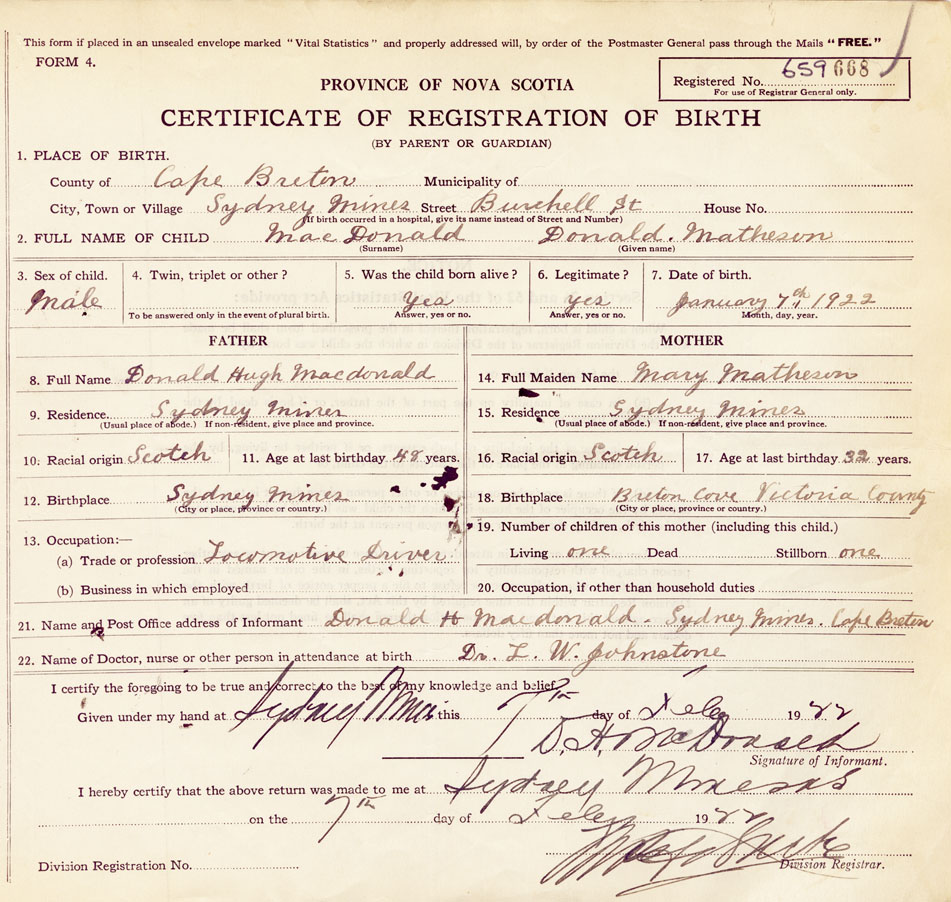 This form if placed in an unsealed envelope marked "Vital Statistics" and properly addressed will, by order of the Postmaster General pass through the Mails "FREE."
FORM 4.
Registered No. 659668
For use of Registrar General only.
PROVINCE OF NOVA SCOTIA
CERTIFICATE OF REGISTRATION OF BIRTH
(BY PARENT OR GUARDIAN)
1. PLACE OF BIRTH.
County of Cape Breton Municipality of
City, Town or Village Sydney Mines Street Burchell St House No.
(If birth occurred in a hospital, give its name instead of Street and Number)
2. FULL NAME OF CHILD MacDonald Donald. Matheson
(Surname) (Given name)
3. Sex of child. 4. Twin, triplet or other? 5. Was the child born alive? 6. Legitimate? 7. Date of birth.
Male Yes yes January 7th, 1922
To be answered only in the event of plural birth. Answer, yes or no. Answer, yes or no. Month, day, year.
FATHER MOTHER
8. Full Name Donald Hugh Macdonald 14. Full Maiden Name Mary Matheson
9. Residence Sydney Mines 15. Residence Sydney Mines
(Usual place of abode.) If non-resident, give place and province. (Usual place of abode.) If non-resident, give place and province.
10. Racial origin Scotch 11. Age at last birthday 48 years. 16. Racial origin Scotch 17. Age at last birthday 32 years.
12. Birthplace Sydney Mines 18. Birthplace Breton Cove Victoria County
(City or place, province or country.) (City or place, province or country.)
13. Occupation:— 19. Number of children of this mother (including this child.)
(a) Trade or profession Locomotive Driver Living one Dead Stillborn one
(b) Business in which employed 20. Occupation, if other than household duties
21. Name and Post Office address of Informant Donald H Macdonald. Sydney Mines. Cape Breton
22. Name of Doctor, nurse or other person in attendance at birth Dr. L. W. Johnstone
I certify the foregoing to be true and correct to the best of my knowledge and belief.
Given under my hand at Sydney Mines this 7th day of Feby 1922
D. H. McDonald
Signature of Informant.
I hereby certify that the above return was made to me at Sydney Mines
on the 7th day of Feby 1922
Division Registration No. Division Registrar.